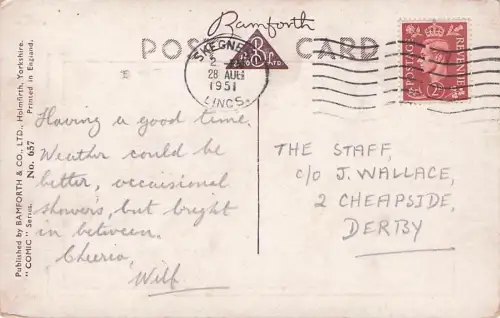 Bamforth
POST CARD
B & Co Ltd
SKEGNESS
28 AUG
1951
LINCS.
POSTAGE REVENUE
Published by BAMFORTH & CO., LTD., Holmfirth, Yorkshire.
"COMIC" Series. No. 657 Printed in England.
Having a good time.
Weather could be
better, occaisional
showers, but bright
in between.
Cheerio,
Wilf.
THE STAFF,
c/o J. WALLACE,
2 CHEAPSIDE,
DERBY